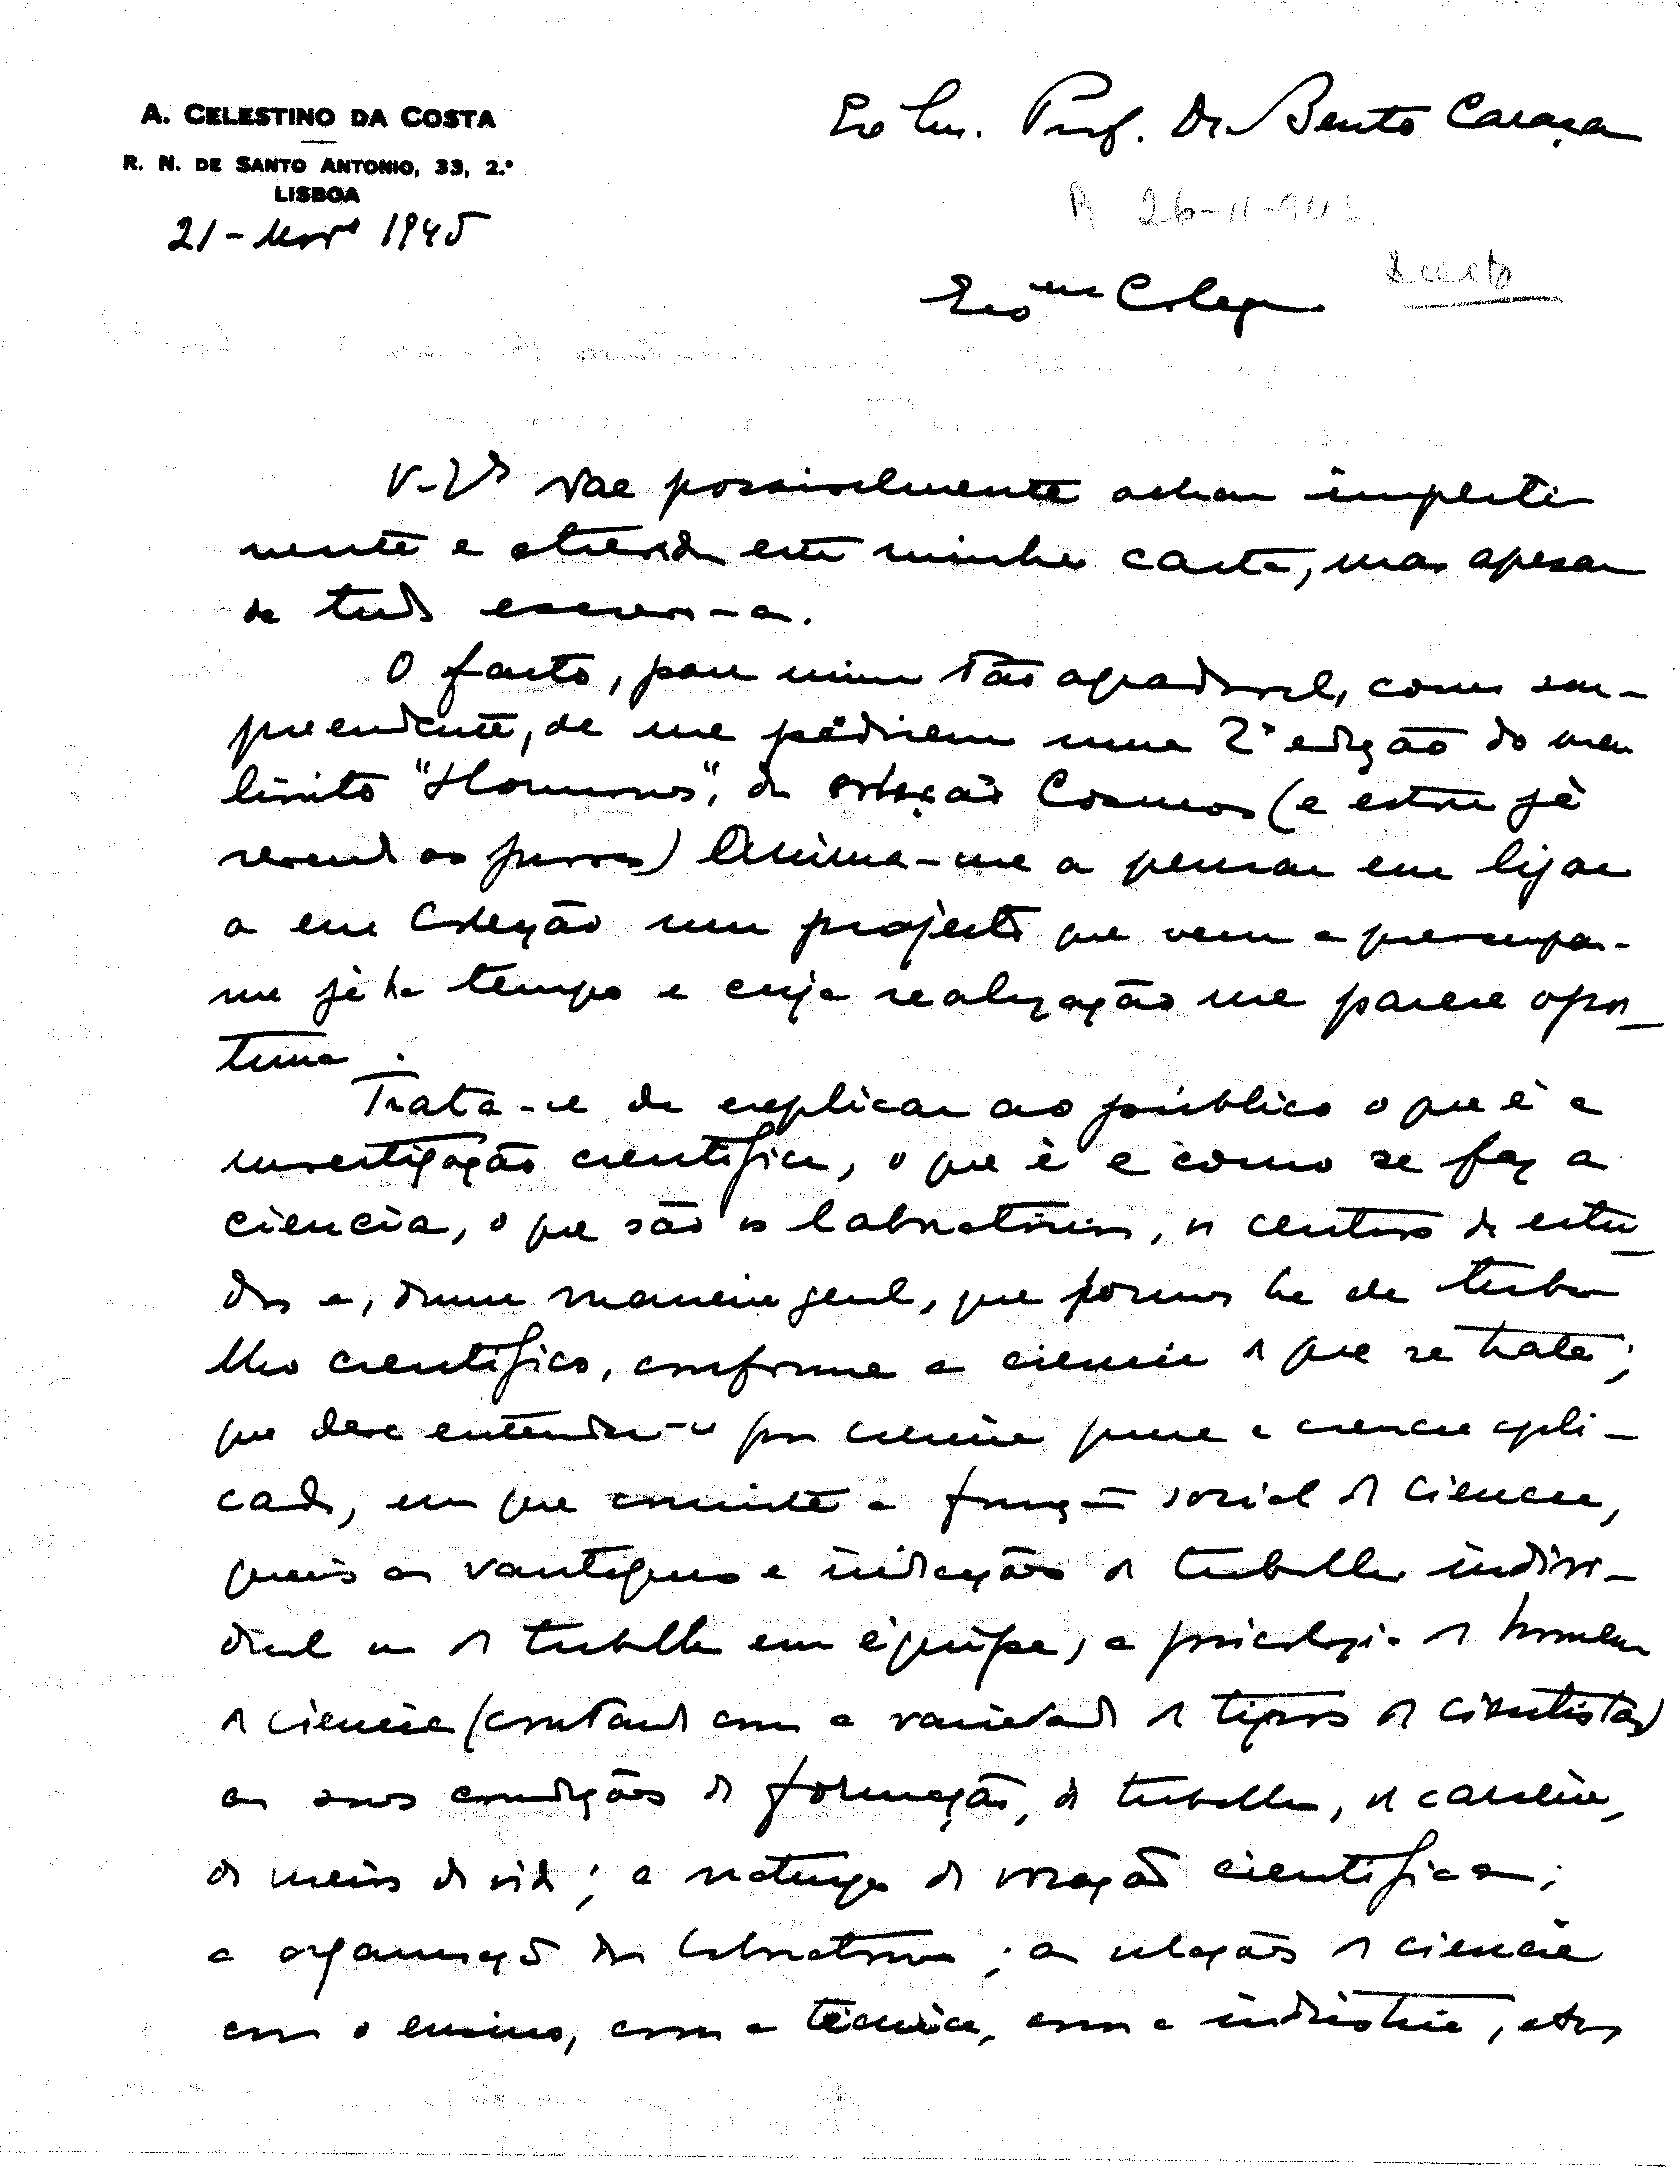 A. CELESTINO DA COSTA
R. N. DE SANTO ANTONIO, 33, 2.º
LISBOA
21-Novº 1945
Exo Snr. Prof. Dr Bento Caraça
R 26-11-945
Aceito
Exo me Colega
V. Exª vae possivelmente achar imperti
nente e atrevida esta minha carta, mas apesar
de tudo escrevo-a.
O facto, para mim tão agradavel, como sur-
preendente, de me pedirem uma 2ª edição do meu
livrito "Hormonas", da colecção Cosmos (e estou já
revendo as provas) anima-me a pensar em ligar
a essa Coleção um projecto que vem a preocupar-
me já ha tempo e cuja realização me parece opor_
tuna.
Trata-se de explicar ao público o que é a
investigação cientifica, o que é e como se faz a
ciencia, o que são os laboratórios, os centros de estu_
dos e, duma maneira geral, que formas ha de traba
lho cientifico, conforme a ciencia de que se trate;
que deve entender-se por ciencia pura e ciencia apli-
cada, em que consiste a função social da ciencia,
quais as vantagens e indicações do trabalho indivi-
dual ou do trabalho em équipe, a psicologia do homem
de ciencia (contando com a variedade de tipos de cientistas)
as suas condições de formação, de trabalho, de carreira,
de meios de vida; a natureza da vocação cientifica;
a organização dos laboratorios; as relações da ciencia
com o ensino, com a técnica, com a indústria,